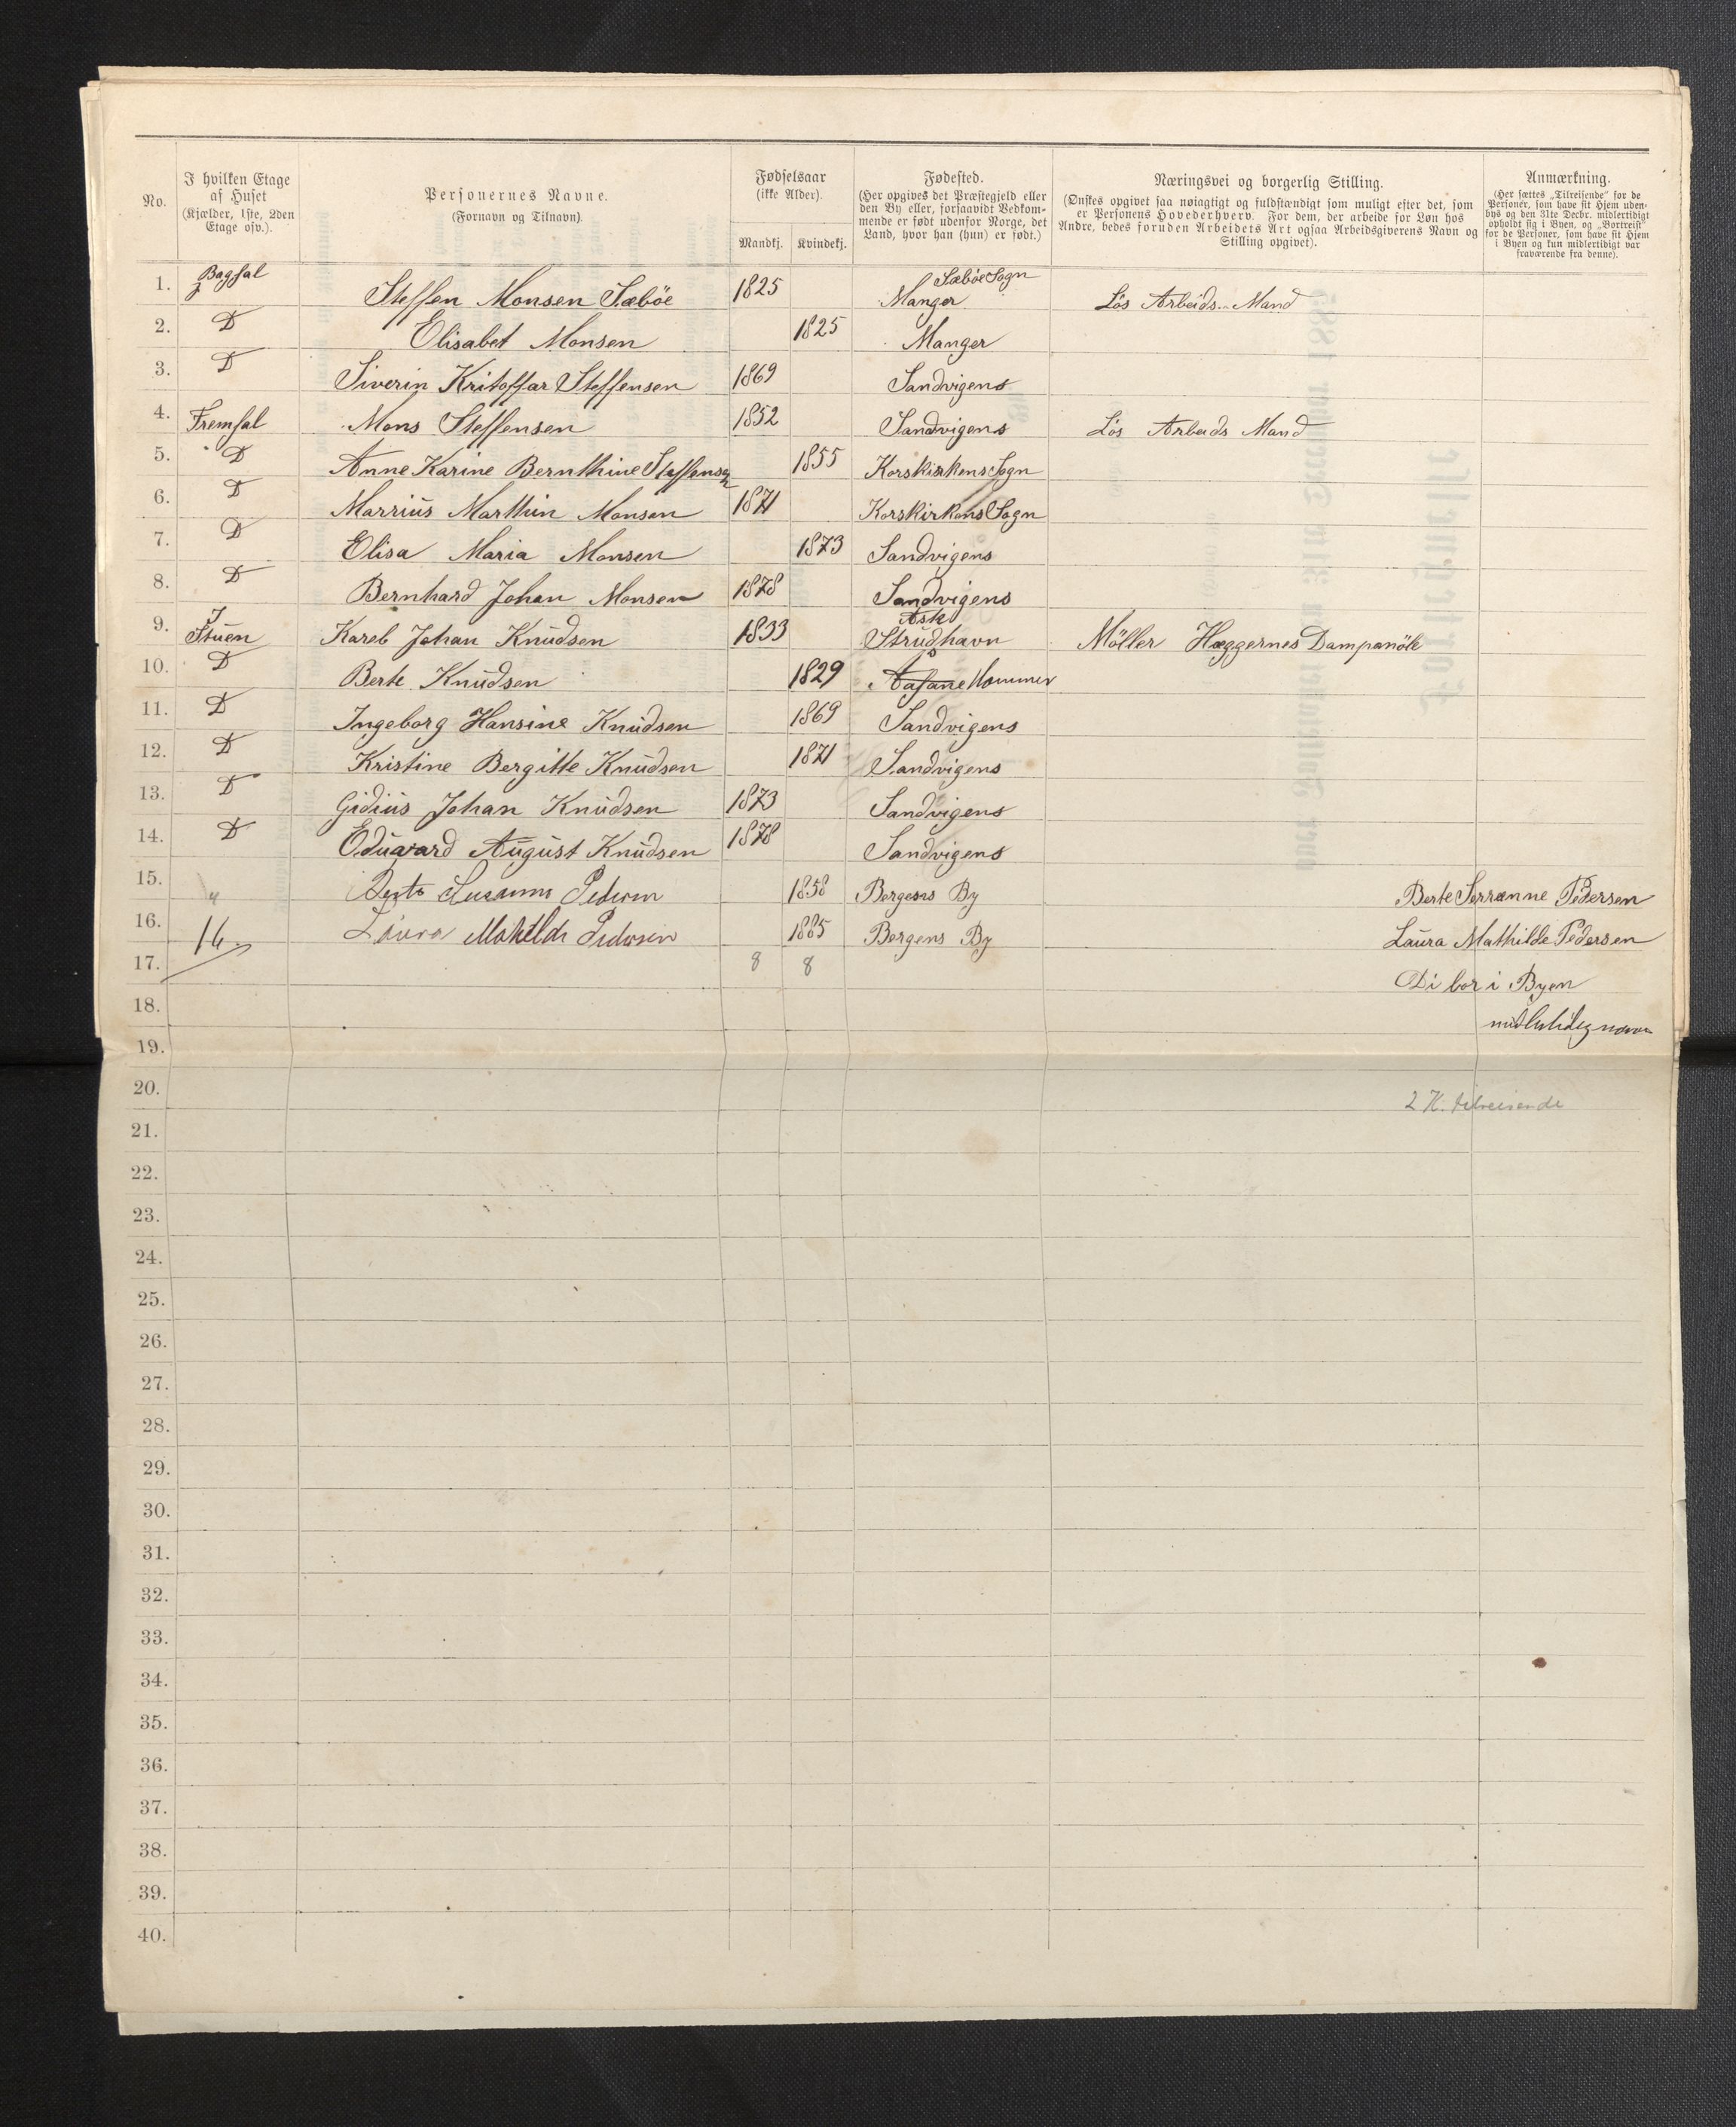 No.
I hvilken Etage af Huset (Kjælder, 1ste, 2den Etage osv.).
Personernes Navne. (Fornavn og Tilnavn).
Fødselsaar (ikke Alder).
Mandkj. Kvindekj.
Fødested. (Her opgives det Præstegjeld eller den By eller, forsaavidt Vedkommende er født udenfor Norge, det Land, hvor han (hun) er født.)
Næringsvei og borgerlig Stilling. (Ønskes opgivet saa nøiagtigt og fuldstændigt som muligt efter det, som er Personens Hovederhverv. For dem, der arbeide for Løn hos Andre, bedes foruden Arbeidets Art ogsaa Arbeidsgiverens Navn og Stilling opgivet).
Anmærkning. (Her sættes „Tilreisende“ for de Personer, som have sit Hjem udenbys og den 31te Decbr. midlertidigt opholdt sig i Byen, og „Bortreist“ for de Personer, som have sit Hjem i Byen og kun midlertidigt var fraværende fra denne).
1. Bagsal Steffen Monsen Sæböe 1825 Manger SæböeSogn Lös Arbeids Mand
2. D Elisabet Monsen 1825 Manger
3. D Siverin Kritoffar Steffensen 1869 Sandvigens
4. Fremsal Mons Steffensen 1852 Sandvigens Lös Arbeids Mand
5. D Anne Karine Bernthine Steffensen 1855 Korskirkens Sogn
6. D Marriüs Marthin Monsen 1871 Korskirkens Sogn
7. D Elisa Maria Monsen 1873 Sandvigens
8. D Bernhard Johan Monsen 1878 Sandvigens
9. I Stüen Karel Johan Knüdsen 1833 Ask Strüdshavn Möller Hæggernes Dampmöle
10. D Berte Knüdsen 1829 Aasane Hammer
11. D Ingeborg Hansine Knüdsen 1869 Sandvigens
12. D Kristine Bergitte Knüdsen 1871 Sandvigens
13. D Gidiüs Johan Knüdsen 1873 Sandvigens
14. D Edüavard Aügüst Knüdsen 1878 Sandvigens
15. " Berte Susanne Pedersen 1858 Bergens By Berte Serranne Pedersen
16. Laura Matilde Pedersen 1885 Bergens By Laüra Mathilde Pedersen
16.
17. 8 8 Di bor i Byen
18.
19.
20. 2 K. tilreisende
21.
22.
23.
24.
25.
26.
27.
28.
29.
30.
31.
32.
33.
34.
35.
36.
37.
38.
39.
40.